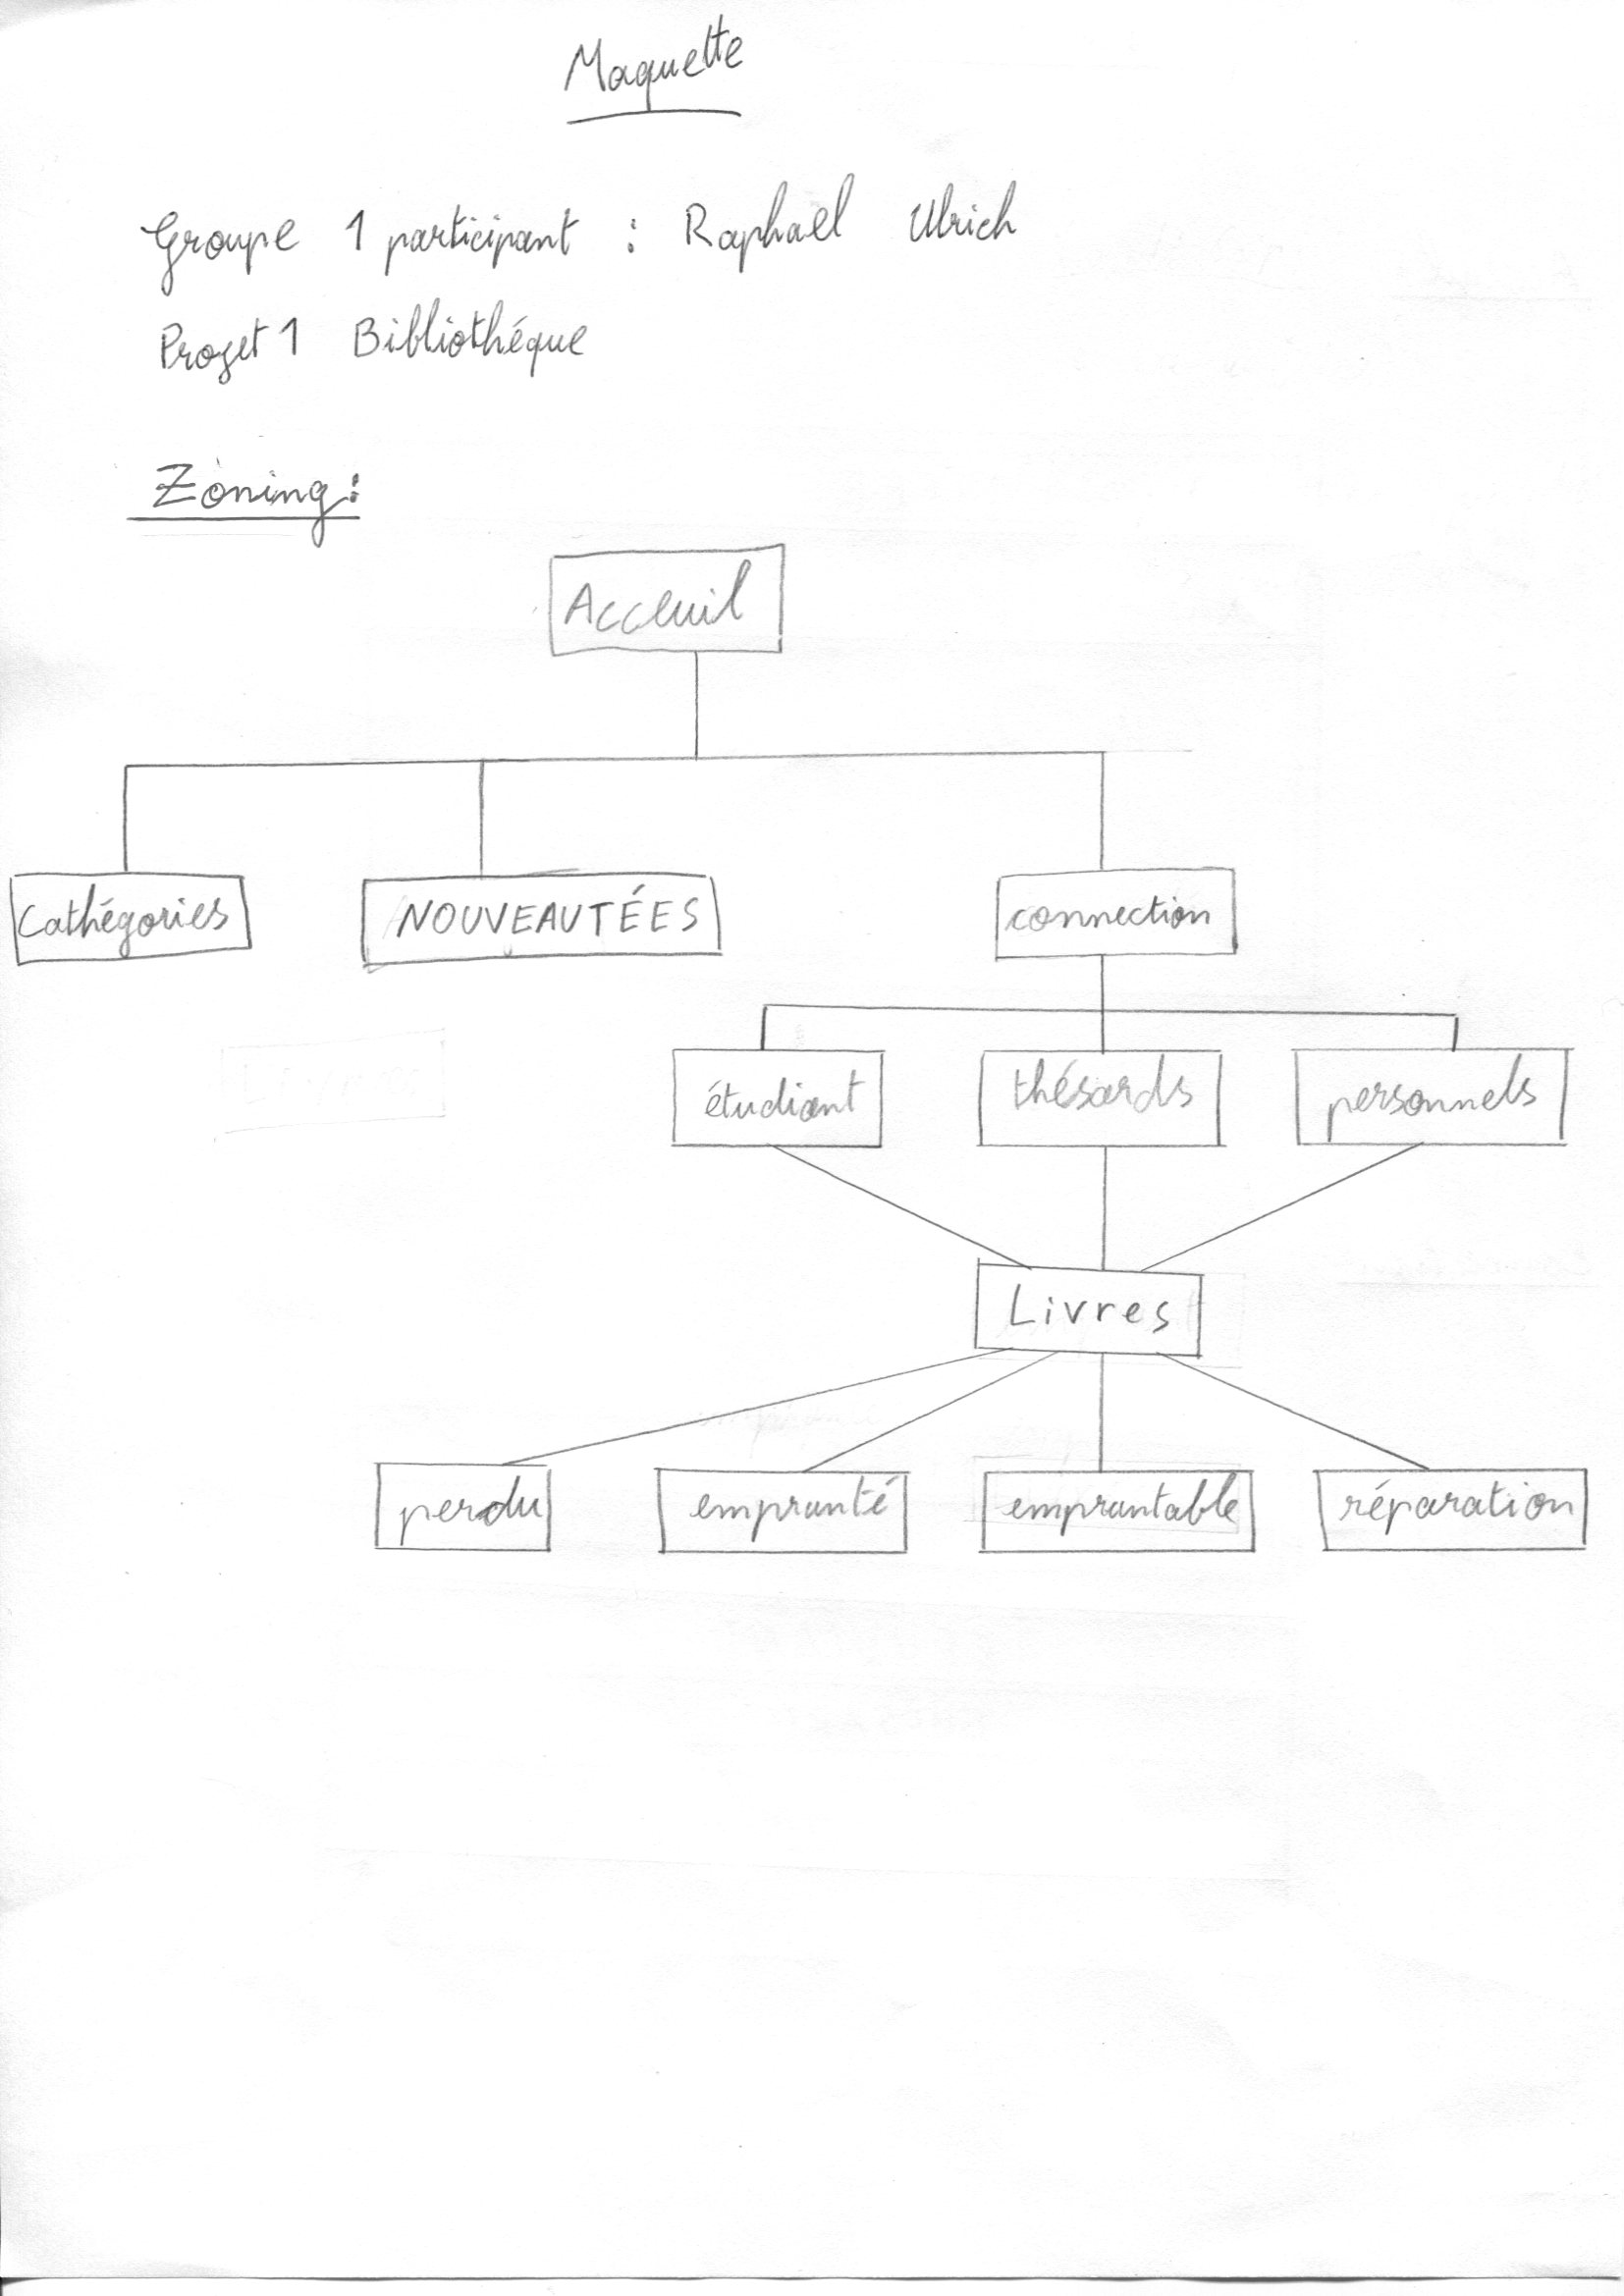 Maquette
Groupe 1 participant : Raphaël Ulrich
Projet 1 Bibliothéque
Zoning :
Acceuil
Cathégories NOUVEAUTÉES connection
étudiant thésards personnels
Livres
perdu emprunté empruntable réparation